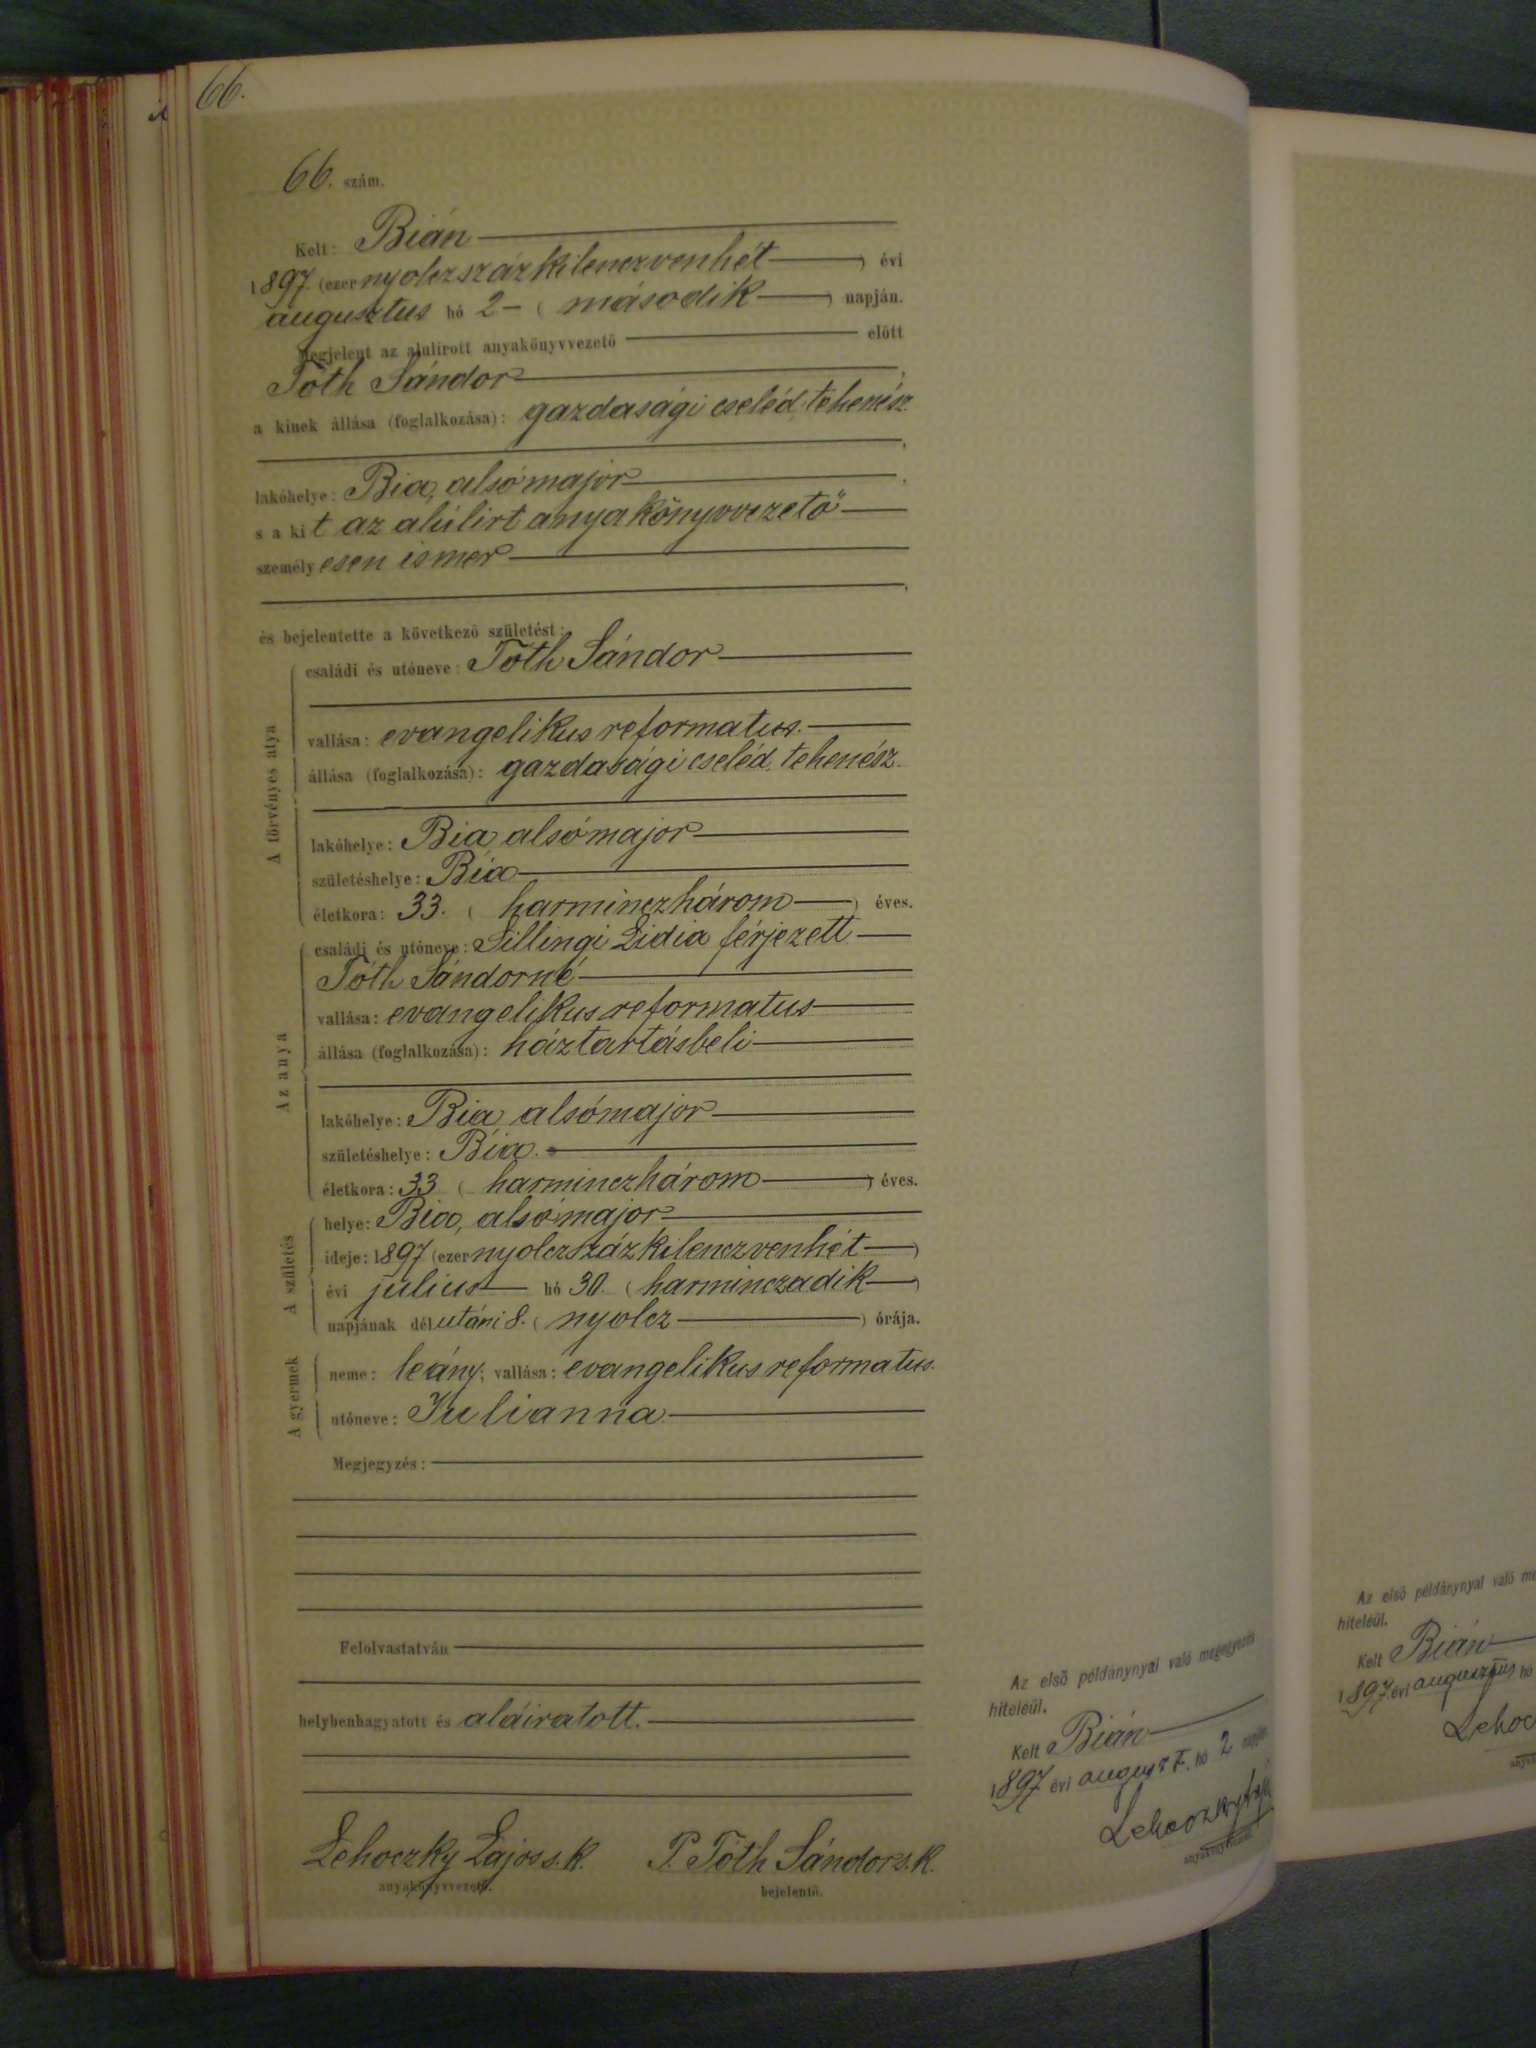 66.
66. szám.
Kelt: Bián
1897. (ezer nyolczszázkilenczvenhét) évi
augusztus hó 2- (második) napján.
Megjelent az alulirott anyakönyvvezető előtt
Tóth Sándor,
a kinek állása (foglalkozása): gazdasági cseléd, tehenész
,
lakóhelye: Bia, alsómajor,
s a kit az alúlirt anyakönyvvezető
személyesen ismer
.
és bejelentette a következő születést:
A törvényes atya
családi és utóneve: Tóth Sándor
vallása: evangelikus reformatus.
állása (foglalkozása): gazdasági cseléd, tehenész.
lakóhelye: Bia, alsómajor
születéshelye: Bia
életkora: 33. (harminczhárom) éves.
Az anya
családi és utóneve: Sillingi Lidia férjezett
Tóth Sándorné
vallása: evangelikus reformatus
állása (foglalkozása): háztartásbeli
lakóhelye: Bia, alsómajor
születéshelye: Bia.
életkora: 33 (harminczhárom) éves.
A születés
helye: Bia, alsómajor
ideje: 1897 (ezer nyolczszázkilenczvenhét)
évi julius hó 30. (harminczadik)
napjának délutáni 8. (nyolcz) órája.
A gyermek
neme: leány; vallása: evangelikus reformatus.
utóneve: Julianna
Megjegyzés:
Felolvastatván
helybenhagyatott és aláiratott.
Lehoczky Lajos s.k. P. Tóth Sándor s.k.
anyakönyvvezető. bejelentő.
Az első példánynyal való megegyezés
hiteléül.
Kelt Bián
1897 évi auguszt. hó 2 napján
Lehoczky
anyakönyvvezető
Az első példánynyal való
hiteléül.
Kelt Bián
1897. évi augusztus hó